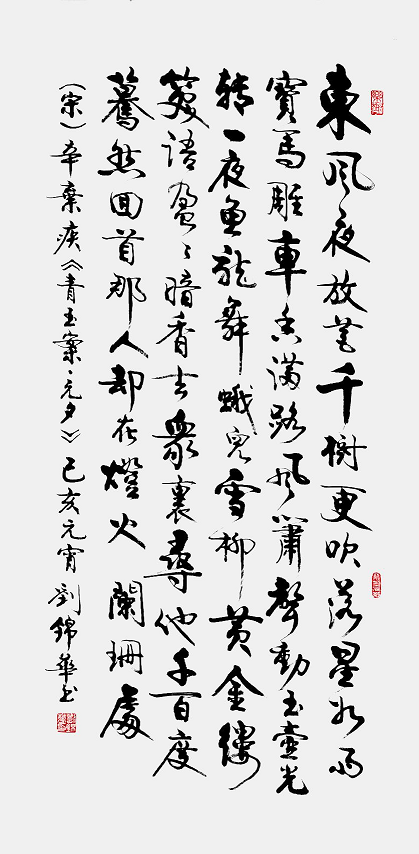 東風夜放花千樹更吹落星如雨
寶馬雕車香滿路鳳簫聲動玉壺光
轉一夜魚龍舞蛾兒雪柳黃金縷
笑語盈〻暗香去衆裏尋他千百度
驀然回首那人却在燈火闌珊處
（宋）辛棄疾《青玉案·元夕》己亥元宵劉錦華书